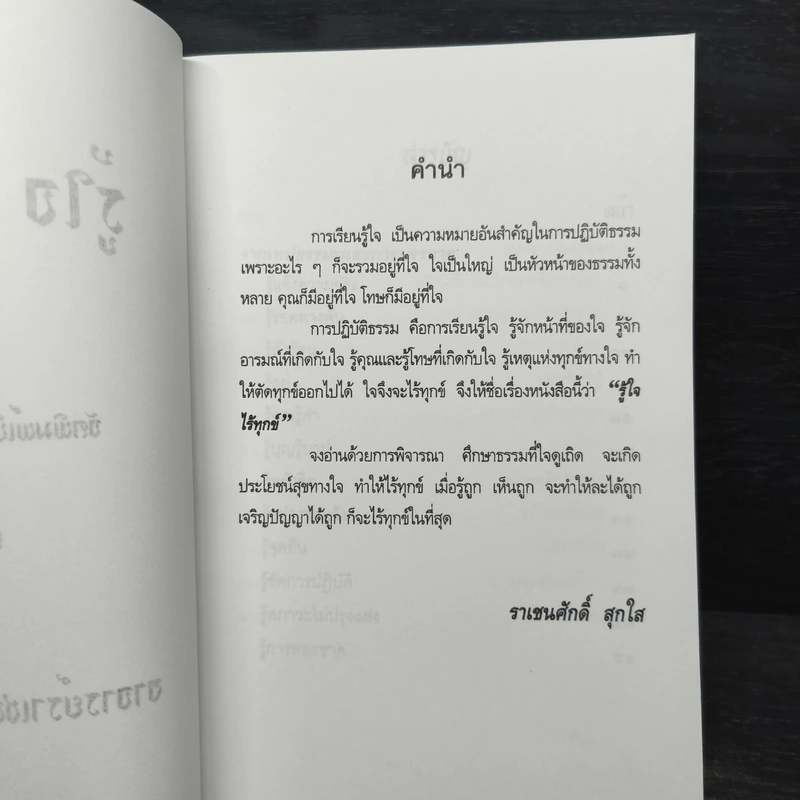 คำนำ
การเรียนรู้ใจ เป็นความหมายอันสำคัญในการปฏิบัติธรรม
เพราะอะไร ๆ ก็จะรวมอยู่ที่ใจ ใจเป็นใหญ่ เป็นหัวหน้าของธรรมทั้ง
หลาย คุณก็มีอยู่ที่ใจ โทษก็มีอยู่ที่ใจ
การปฏิบัติธรรม คือการเรียนรู้ใจ รู้จักหน้าที่ของใจ รู้จัก
อารมณ์ที่เกิดกับใจ รู้คุณและรู้โทษที่เกิดกับใจ รู้เหตุแห่งทุกข์ทางใจ ทำ
ให้ตัดทุกข์ออกไปได้ ใจจึงจะไร้ทุกข์ จึงให้ชื่อเรื่องหนังสือนี้ว่า “รู้ใจ
ไร้ทุกข์”
จงอ่านด้วยการพิจารณา ศึกษาธรรมที่ใจดูเถิด จะเกิด
ประโยชน์สุขทางใจ ทำให้ไร้ทุกข์ เมื่อรู้ถูก เห็นถูก จะทำให้ละได้ถูก
เจริญปัญญาได้ถูก ก็จะไร้ทุกข์ในที่สุด
ราเชนศักดิ์ สุกใส